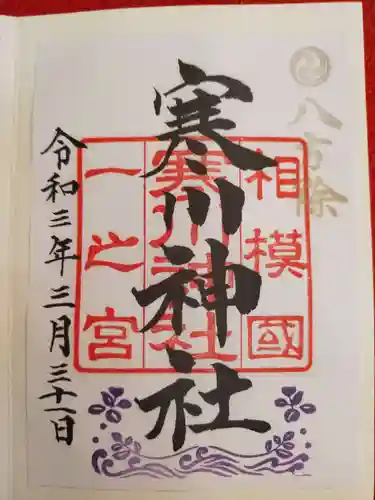 八方除
寒川神社
相模國
寒川神社
一之宮
令和三年三月三十一日